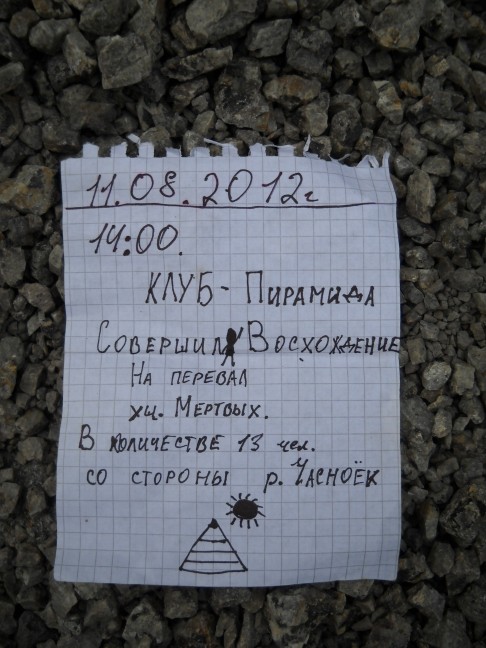 11.08.2012г
14:00.
КЛУБ - ПИРАМИДА
СОВЕРШИЛ ВОСХОЖДЕНИЕ
НА ПЕРЕВАЛ
хи. МЕРТВЫХ.
В КОЛИЧЕСТВЕ 13 чел.
СО СТОРОНЫ р. ЧАСНОЁК